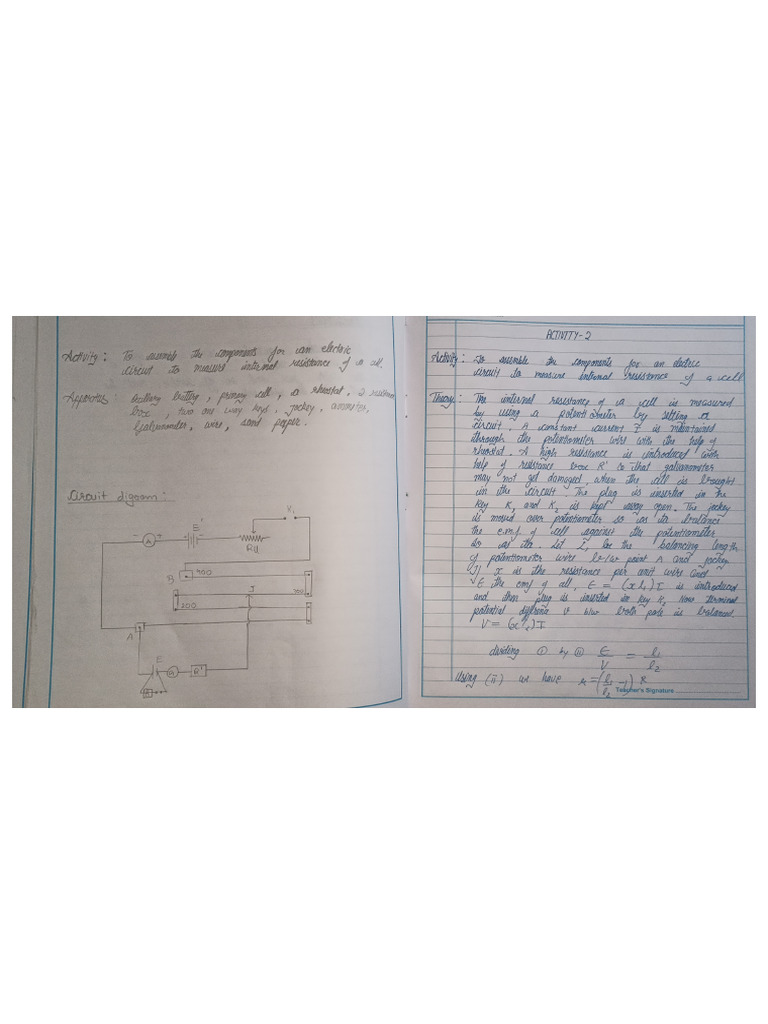 Activity : To assemble the components for an electric
circuit to measure internal resistance of a cell.
Apparatus : battery, primary cell, a rheostat, 2 resistance
box, two one way keys, jockey, ammeter,
Galvanometer, wire, sand paper.
Circuit digram :
- A + + E' -
Rh
K,
B 400
300
J
200
A
E
G
R'
ACTIVITY-2
Activity : To assemble the components for an electric
circuit to measure internal resistance of a cell
Theory : The internal resistance of a cell is measured
by using a potentiometer by setting a
circuit. A constant current I is maintained
through the potentiometer wire with the help of
rheostat. A high resistance is introduced with
help of resistance box R' so that galvanometer
may not get damaged, when the cell is brought
in the circuit. The plug is inserted in the
key K, and K2 is kept open. The jockey
is moved over potentiometer so as to balance
the e.m.f of cell against the potentiometer
Let l, be the balancing length
of potentiometer wire b/w point A and jockey
If x is the resistance per unit wire and
E the emf of cell, E = (xl,)I is introduced
and then plug is inserted in key K2 Now terminal
potential difference V b/w both pole is balanced
V = (xl2)I
dividing ① by ② E/V = l1/l2
Using (ii) we have r = (l1/l2 -1) R
Teacher's Signature